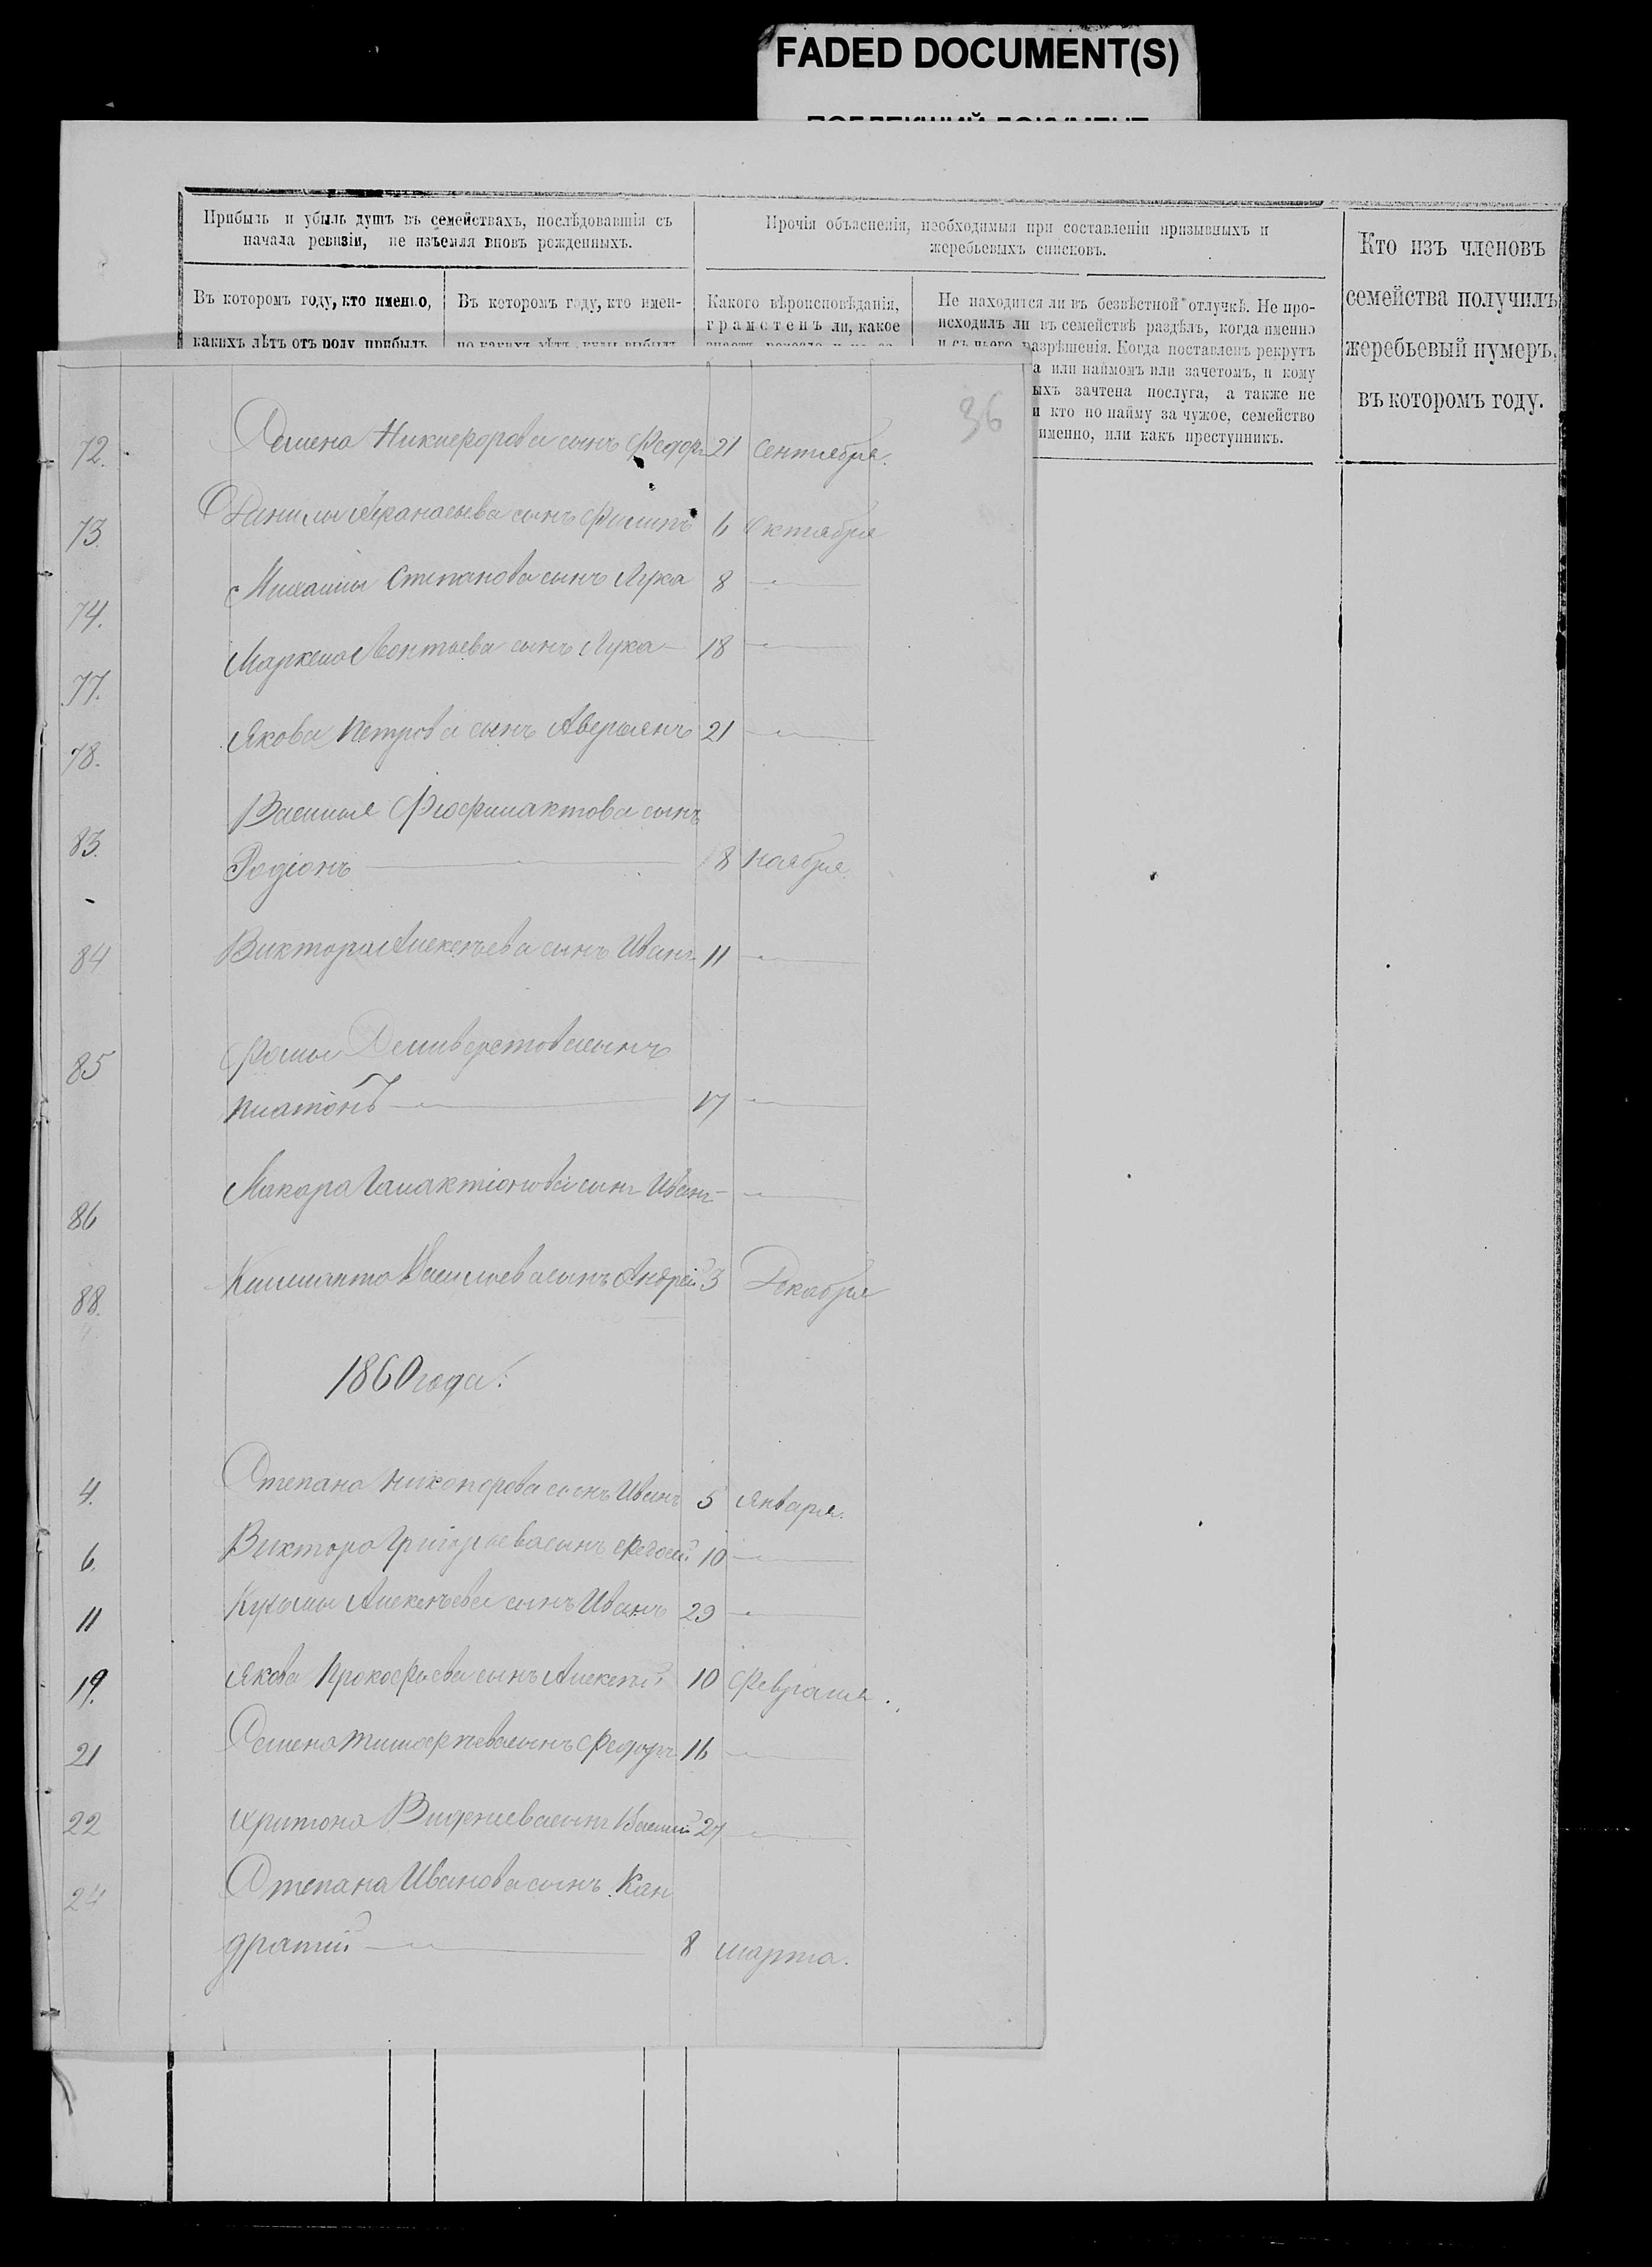 FADED DOCUMENT(S)
Прибыль и убыль душъ въ семействахъ, послѣдовавшія съ
начала ревизіи, не изъемля вновь рожденныхъ.
Прочія объясненія, необходимыя при составленіи призывныхъ и
жеребьевыхъ списковъ.
Кто изъ членовъ
семейства получилъ
жеребьевый нумеръ,
въ которомъ году.
Въ которомъ году, кто именно,
какихъ лѣтъ отъ роду прибылъ
Въ которомъ году, кто имен-
но какихъ лѣтъ, куда выбылъ
Какого вѣроисповѣданія,
грамотенъ ли, какое
Не находится ли въ безвѣстной отлучкѣ. Не про-
исходилъ ли въ семействѣ раздѣлъ, когда именно
и съ чьего разрѣшенія. Когда поставленъ рекрутъ
а или наймомъ или зачетомъ, и кому
ыхъ зачтена послуга, а также не
и кто по найму за чужое, семейство
именно, или какъ преступникъ.
36
72. Семена Никиеророва сынъ Федоръ 21 Сентября.
73. Данилы Афанасьева сынъ Филипъ 6 Октября
74. Михаилы Степанова сынъ Лука 8 —
77. Маркела Леонтьева сынъ Лука 18 —
78. Якова Петрова сынъ Аверьянъ 21 —
83. Василья Феофилактова сынъ
Родіонъ — 8 Ноября
84 Виктора Алексѣева сынъ Иванъ 11 —
85 Фомы Селиверстова сынъ
Платонъ — 17 —
86 Макара Галактіонова сынъ Иванъ — —
88. Василиева сынъ Андрей 3 Декабря
1860 года.
4. Степана Никонорова сынъ Иванъ 5 Января.
6. Виктора Григорьева сынъ 10 —
11 Кузьмы Алексѣева сынъ Иванъ 29 —
19. Якова Прокофьева сынъ Алексѣй 10 Февраля.
21 Семена Тимофѣева сынъ Федоръ 16 —
22 сынъ Василій 27 —
24 Степана Иванова сынъ Кан
дратій — 8 марта.